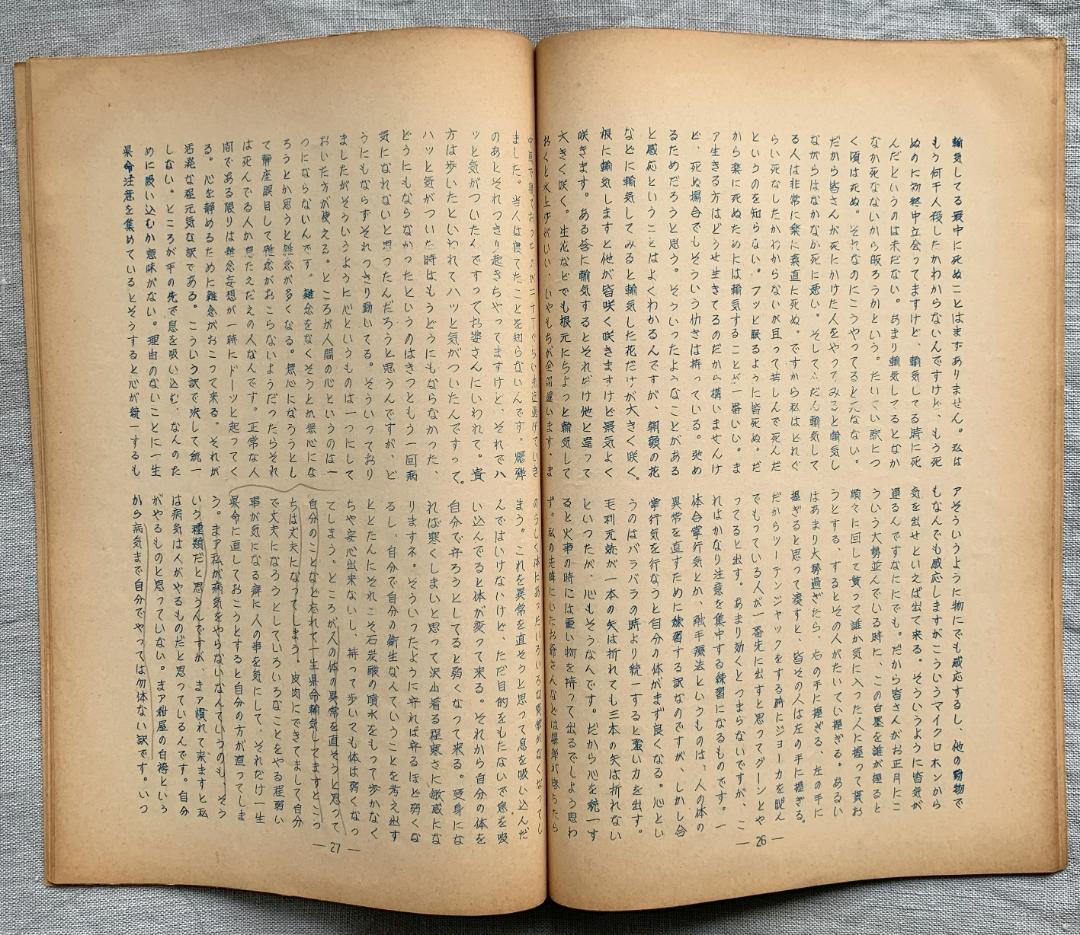 輸気してる最中に死ぬことはまずありません。私は
もう何千人役したかわからないんですけど、もう死
ぬのに初終中立会ってますけど、輸気してる時に死
んだというのは未だない。あまり輸気してるとなか
なか死なないから皈ろうかという。たいてい欤につ
く頃は死ぬ。それなのにこうやってると死なない。
だから皆さんが死にかけた人をやってみると輸気し
ながらはなかなか死に悪い。そしてふだん輸気して
る人は非常に楽に素直に死ぬ。ですから私はどれぐ
らい死なしたかわからないが且って苦しんで死んだ
というのを知らない。フッと眠るように皆死ぬ。だ
から楽に死ぬためには輸気することが一番いい。ま
ア生きる方はどうせ生きてるのだから構いませんけ
ど、死ぬ場合でもそういう働きは持っている。弛め
るためだろうと思う。そういったようなことがある
と感応ということはよくわかるんですが、朝顔の花
などに輸気してみると輸気した花だけが大きく咲く。
根に輸気しますと他が皆咲く咲きますけど景気よく
咲きます。ある莟に輸気するとそれだけ他と違って
大きく咲く。生花などでも根元にちよっと輸気して
おくと水上げがいい、いやもちが全部違います。ま
アそういうように物にでも感応するし、他の動物で
もなんでも感応しますがこういうマイクロホンから
気を出せといえば出て来る。そういうように皆気が
通るんですなにでも。だから皆さんがお正月にこ
ういう大勢並んでいる時に、この白墨を誰が握ると
順々に回して貰って誰か気に入った人に握って貰お
うとする するとその人がたいてい握ぎる。あるい
はあまり大勢過ぎたら、右の手に握ぎる、左の手に
握ぎると思って渡すと、皆その人は左の手に握ぎる。
だからツーテンジャックをする時にジョーカを睨ん
でもっている人が一番先に出すと思ってグーンとや
ってると出す。あまり効くとつまらないですが、こ
ればかなり注意を集中する練習になるものです。一
体合掌行気とか、愉手療法というものは、人の体の
異常を直すために練習する訳なのですが、しかし合
掌行気を行なうと自分の体がまず良くなる。心とい
うのはバラバラの時より統一すると濃い力を出す。
毛利元就が一本の矢は折れても三本の矢は折れない
といったが、心もそうなんです。だから心を統一す
ると火事の時には重い物を持って出るでしよう思わ
ず。私の先隣にいたお爺さんなどは爆弾が落ちたら
— 26 —
ました。当人は寝てたことを知らないんです。爆弾
のあとそれっきり起きちやってますけど、それでハ
ッと気がついたんですってお婆さんにいわれて。貴
方は歩いたといわれてハッと気がついたんですって。
ハッと気がついた時はもうどうにもならなかった、
どうにもならなかったというのはきつともう一回病
気になれないと思ったんだろうと思うんですが、ど
うにもならずそれっきり動いてる。そういっており
ましたがそういうように心というものは一つにして
おいた方が使える。ところが人間の心というのは一
つにならないんです。雑念をなくそうとか無心にな
ろうとか思うと雑念が多くなる。無心になろうとし
て静座瞑目して雑念がおこらないようだったらそれ
は死んでる人か
間である限りは雑念妄想が一時にドーッと起ってく
る。心を静めるために雑念がおこって来る、それが
活溌な程元気な訳である。こういう訳で決して統一
しない。ところが手の先で息を吸い込む、なんのた
めに吸い込むか意味がない。理由のないことに一生
県命注意を集めているとそうすると心が統一するも
のらしく
まう。これを異常を直そうと思って息を吸い込んだ
んではいけないけど、ただ目的をもたないで息を吸
い込んでると体が変って来る。それから自分の体を
自分で守ろうとしてると弱くなって来る。受身にな
れば寒くしまいと思って沢山着る程寒さに敏感にな
りますネ。そういったように守れば守るほど弱くな
るし、自分で自分の衛生なんていうことを考え出す
ととたんにそれこそ石炭酸の噴水をもって歩かなく
ちや安心出来ないし、持って歩いても体は弱くなっ
てしまう。ところが人の体の異常を直そうと思って
自分のことなど忘れて一生県命輸気してますとこっ
ちは丈夫になってしまう。皮肉にできてまして自分
で丈夫になろうとしていろいろなことをやる程弱い
事が気になる癖に人の事を気にして、それだけ一生
県命に直しておこうとすると自分の方が直ってしま
う。まア私が病気をやらないなんていうのも、そう
いう種類だと思うんですが、まア慣れて来ますと私
は病気は人がやるものだと思っているんです。自分
がやるものと思っていない。まア紺屋の白袴という
から病気まで自分でやっては勿体ない訳です。いつ
— 27 —